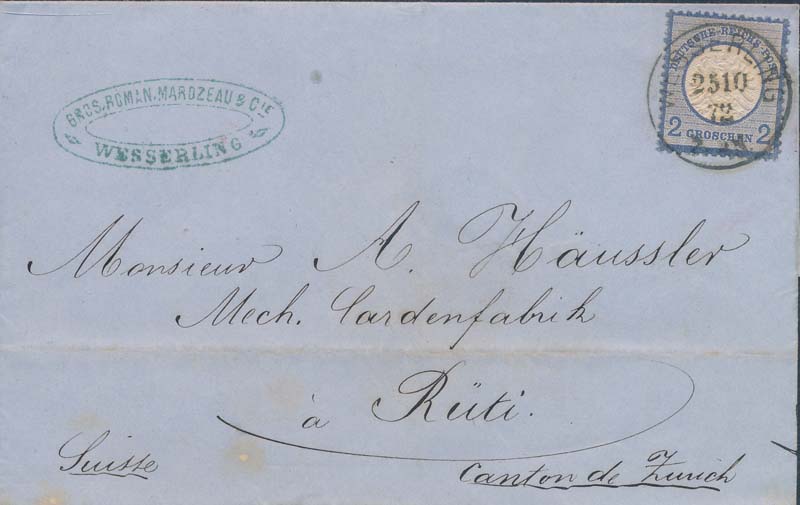 GROS, ROMAN, MAROZEAU & CIE
WESSERLING
DEUTSCHE REICHS-POST
2 GROSCHEN 2
WESSERLING
25 10
72
Monsieur A. Häussler
Mech. Cardenfabrik
à Rüti.
Suisse
Canton de Zurich